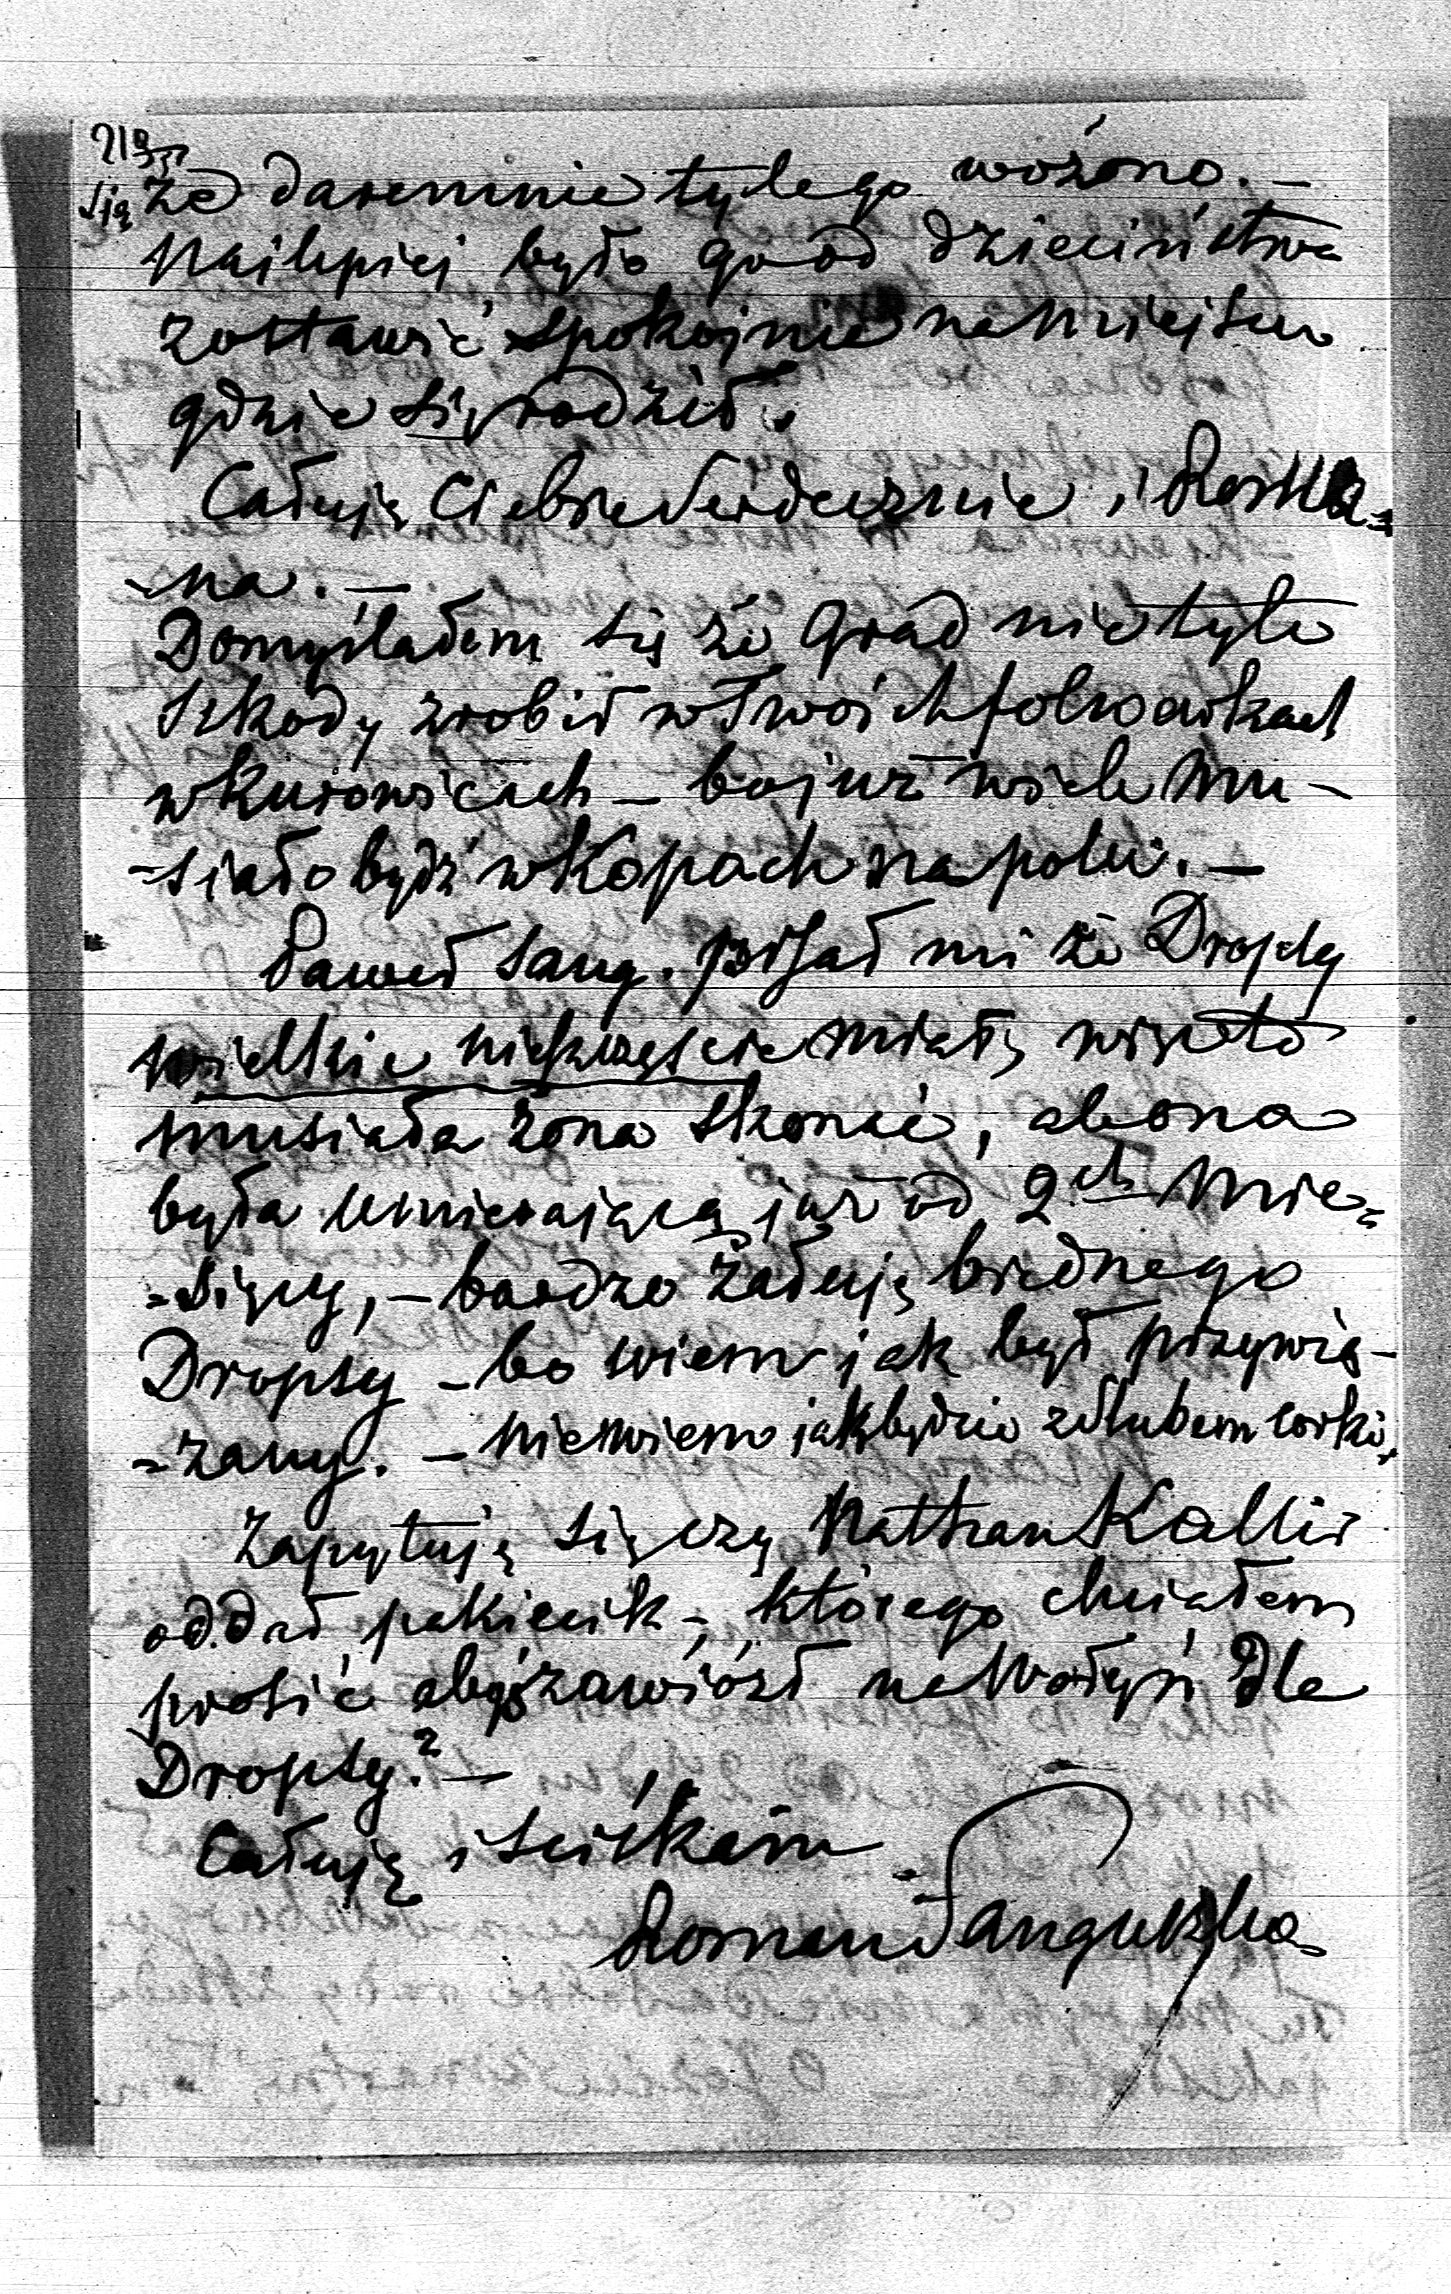 219
się że daremnie tyle go wożono. —
Najlepiej było go od dzieciństwa
zostawić spokojnie na miejscu
gdzie się rodził.
Całuję Ciebie serdecznie, i Roma=
-na. —
Domyślałem się że Grad nie tyle
szkody zrobił w Twoich folwarkach
w Kurowicach — bo już wiele mu-
-siało bydź w Kopach na polu. —
Paweł Sang. pisał mi że Dropsy
wielkie nieszczęście miał, więc to
musiała żona skonać, ale ona
była umierającą już od 2ch mie=
=sięcy, — bardzo żałuję biednego
Dropsy — bo wiem jak był przywią-
=zany. — nie wiem jak będzie z ślubem corki,
Zapytuję się czy Nathan Kallir
oddał pakiecik —, którego chciałem
prosić abyś zawiózł na Wołyń dla
Dropsy? —
Całuję i ściskam
Roman Sanguszko